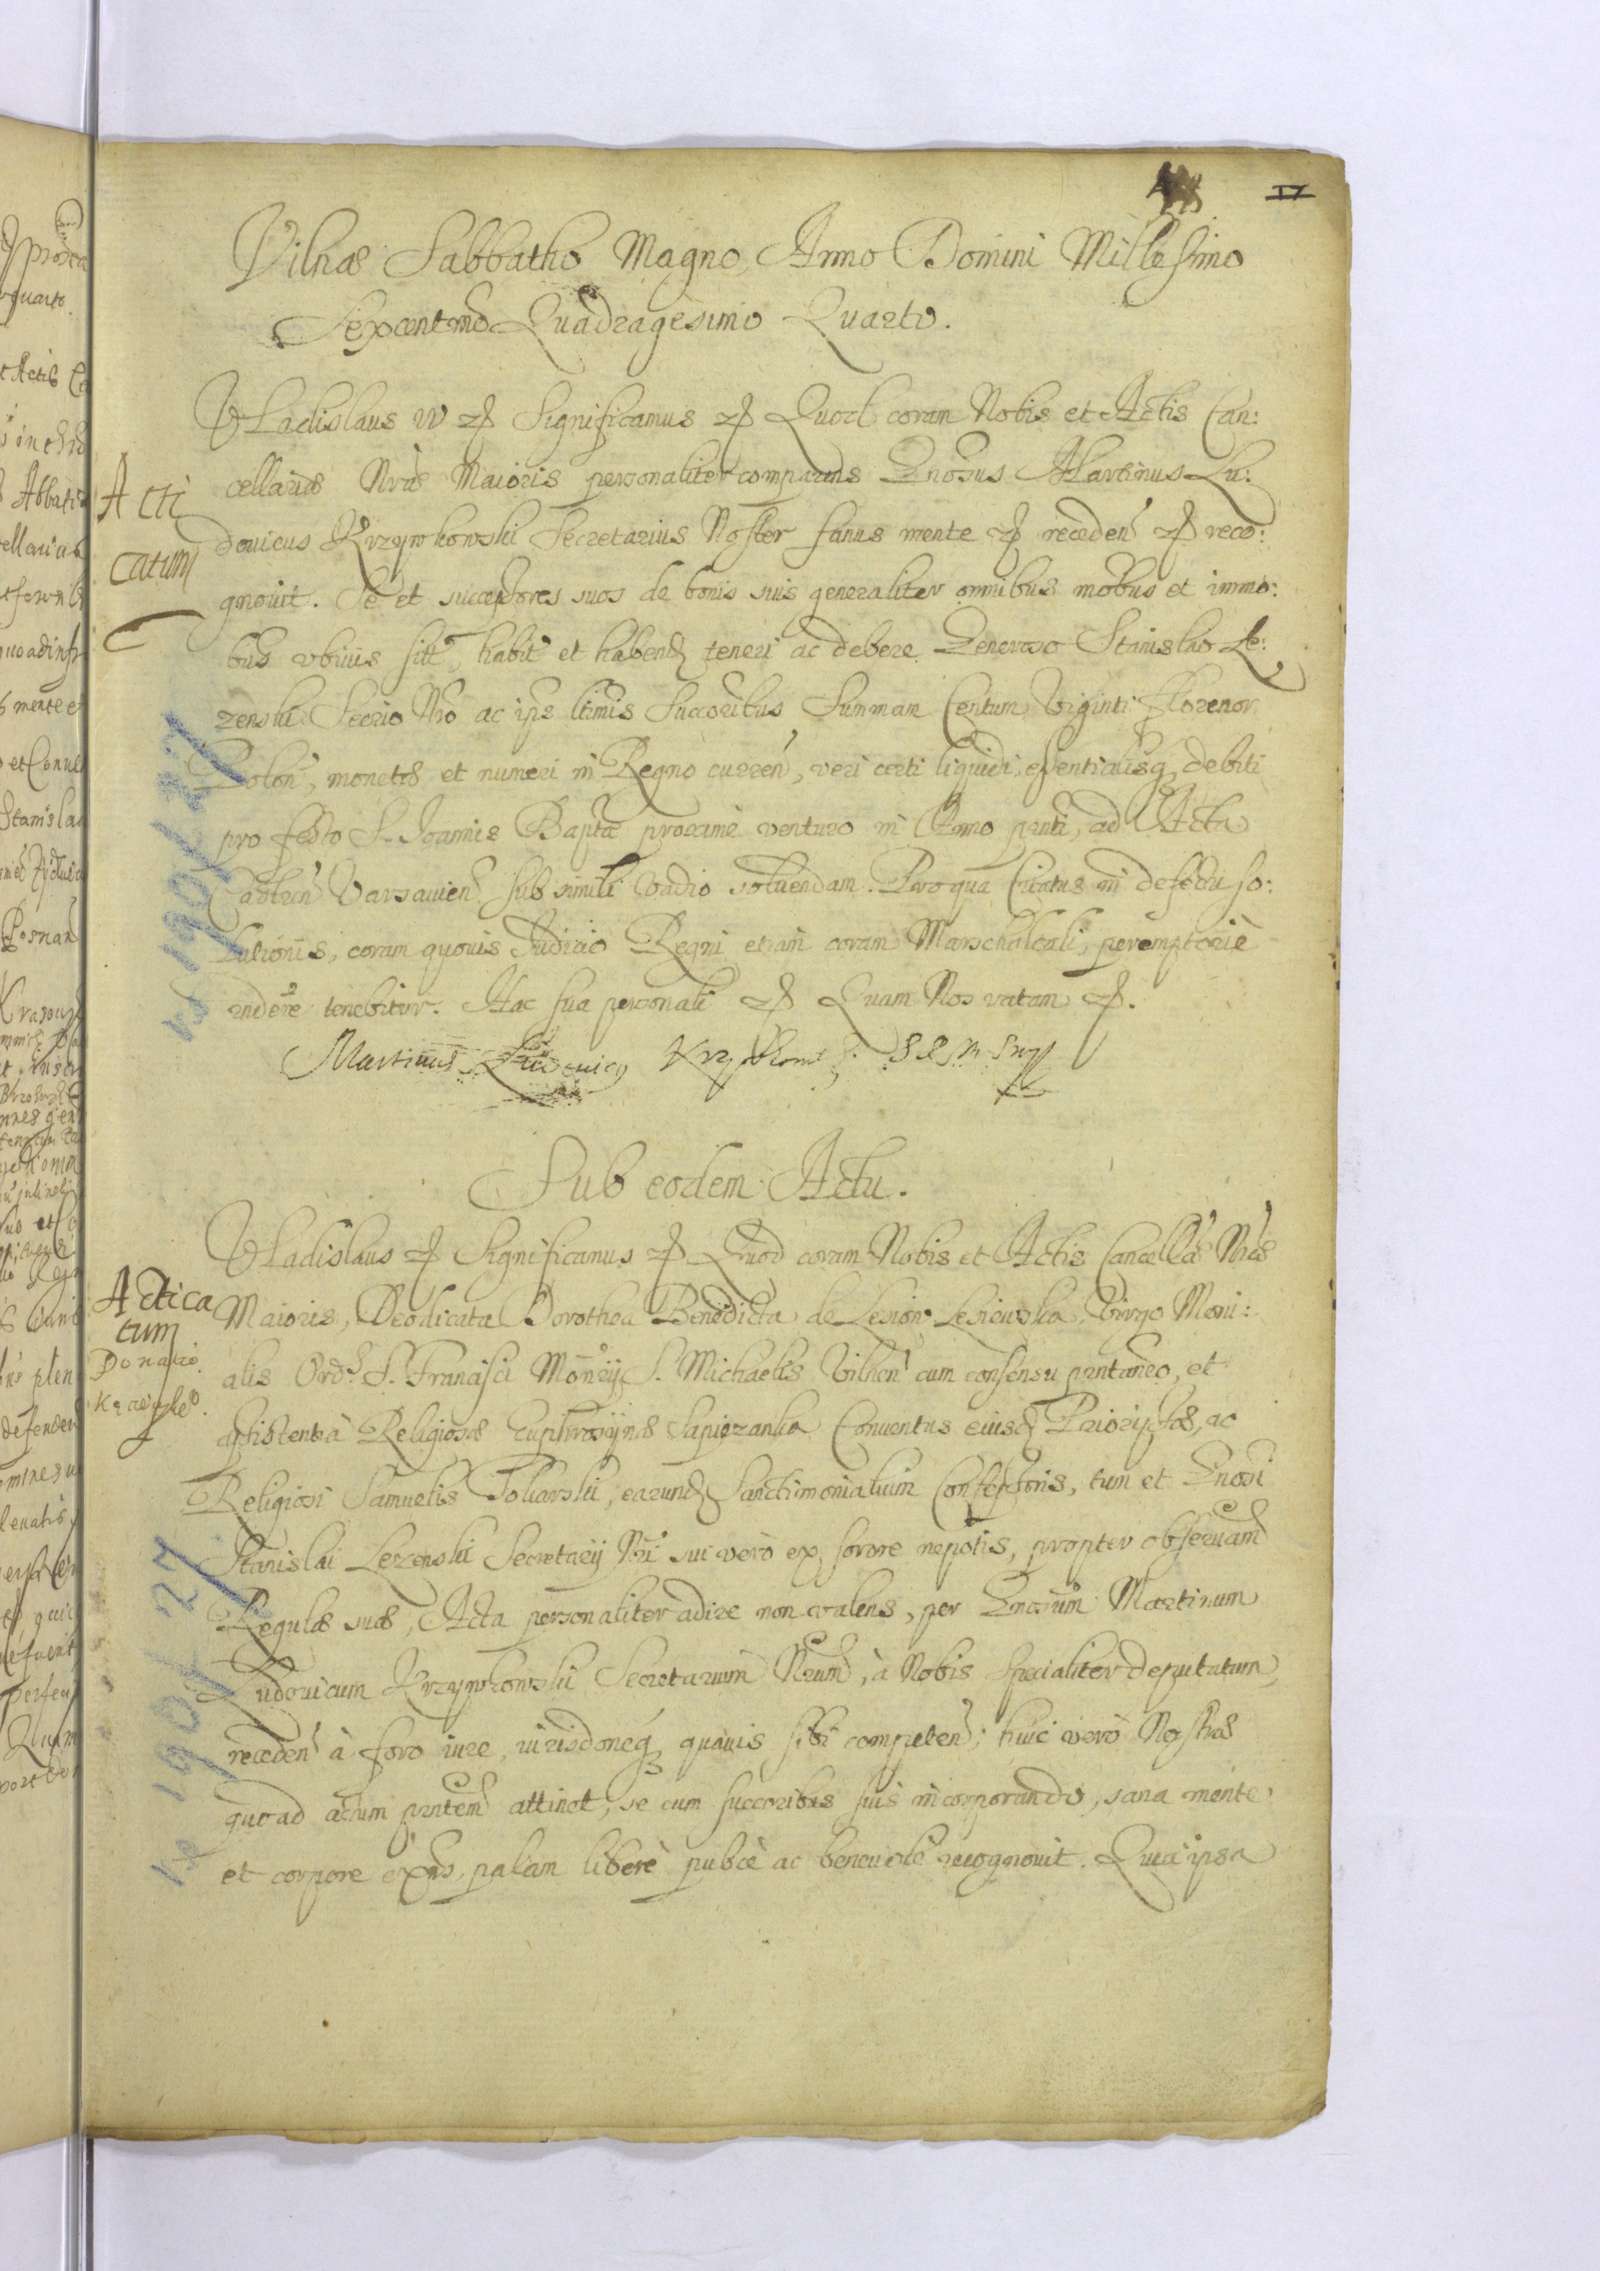 17
Vilnae Sabbatho Magno, Anno Domini Millesimo
Sexcentmo Quadragesimo Quarto.
Acti
catum
Vladislaus IV etc Significamus etc Quod coram Nobis et Actis Can:
cellariae Nrae Maioris personaliter comparens Gnosus Martinus Lu:
douicus Krzypkowski Secretarius Noster sanus mente etc receden etc reco:
gnouit. Se et successores suos de bonis suis generaliter omnibus mobus et immo:
bus vbiuis sitt, habit et habend teneri ac debere Generoso Stanislao Le:
zenski Secrio Nro ac ips ltimis Succoribus Summam Centum Viginti Florenor
Polon, monetae et numeri in Regno curren, veri certi liquidi, essentialisq debiti
pro festo S. Joannis Baptae proxime venturo in Anno prnti, ad Acta
Castren Varsauien sub simili vadio soluendam. Pro qua Citatus in defectu so:
lutionis, coram quouis Judicio Regni etiam coram Marschalcali, peremptorie
rndere tenebitur. Hac sua personali etc Quam Nos ratam etc.
Martinus Ludouicq Krzypkowski S R M
Sub eodem Actu.
Actica
tum
Donatio
Vladislaus etc Significamus etc Quod coram Nobis et Actis Cancellae Nrae
Maioris, Deodicata Dorothea Benedicta de Lesiow Lesiewska, Virgo Moni:
alis Ord. S. Francisci Monrij S. Michaelis Vilnen cum consensu prntaneo, et
assistentia Religiosae Euphrosynae Sapiezanka Conuentus eiusd Priorissae, ac
Religiosi Samuelis Toliarski, earund Sanctimonialium Confessoris, tum et Gnosi
Stanislai Lezenski Secretarij Nri sui vero ex sorore nepotis, propter obseruam
Regulae suae, Acta personaliter adire non valens, per Gnosum Martinum
Ludouicum Krzypkowski Secretarium Nrum, à Nobis specialiter deputatum,
receden à foro iure, iurisdoneq quauis sibi competen; huic vero Nostrae
quoad actum prntem attinet, se cum succoribus suis incorporando, sana mente
et corpore exns, palam libere publce ac beneuole recognouit. Quia ipsa